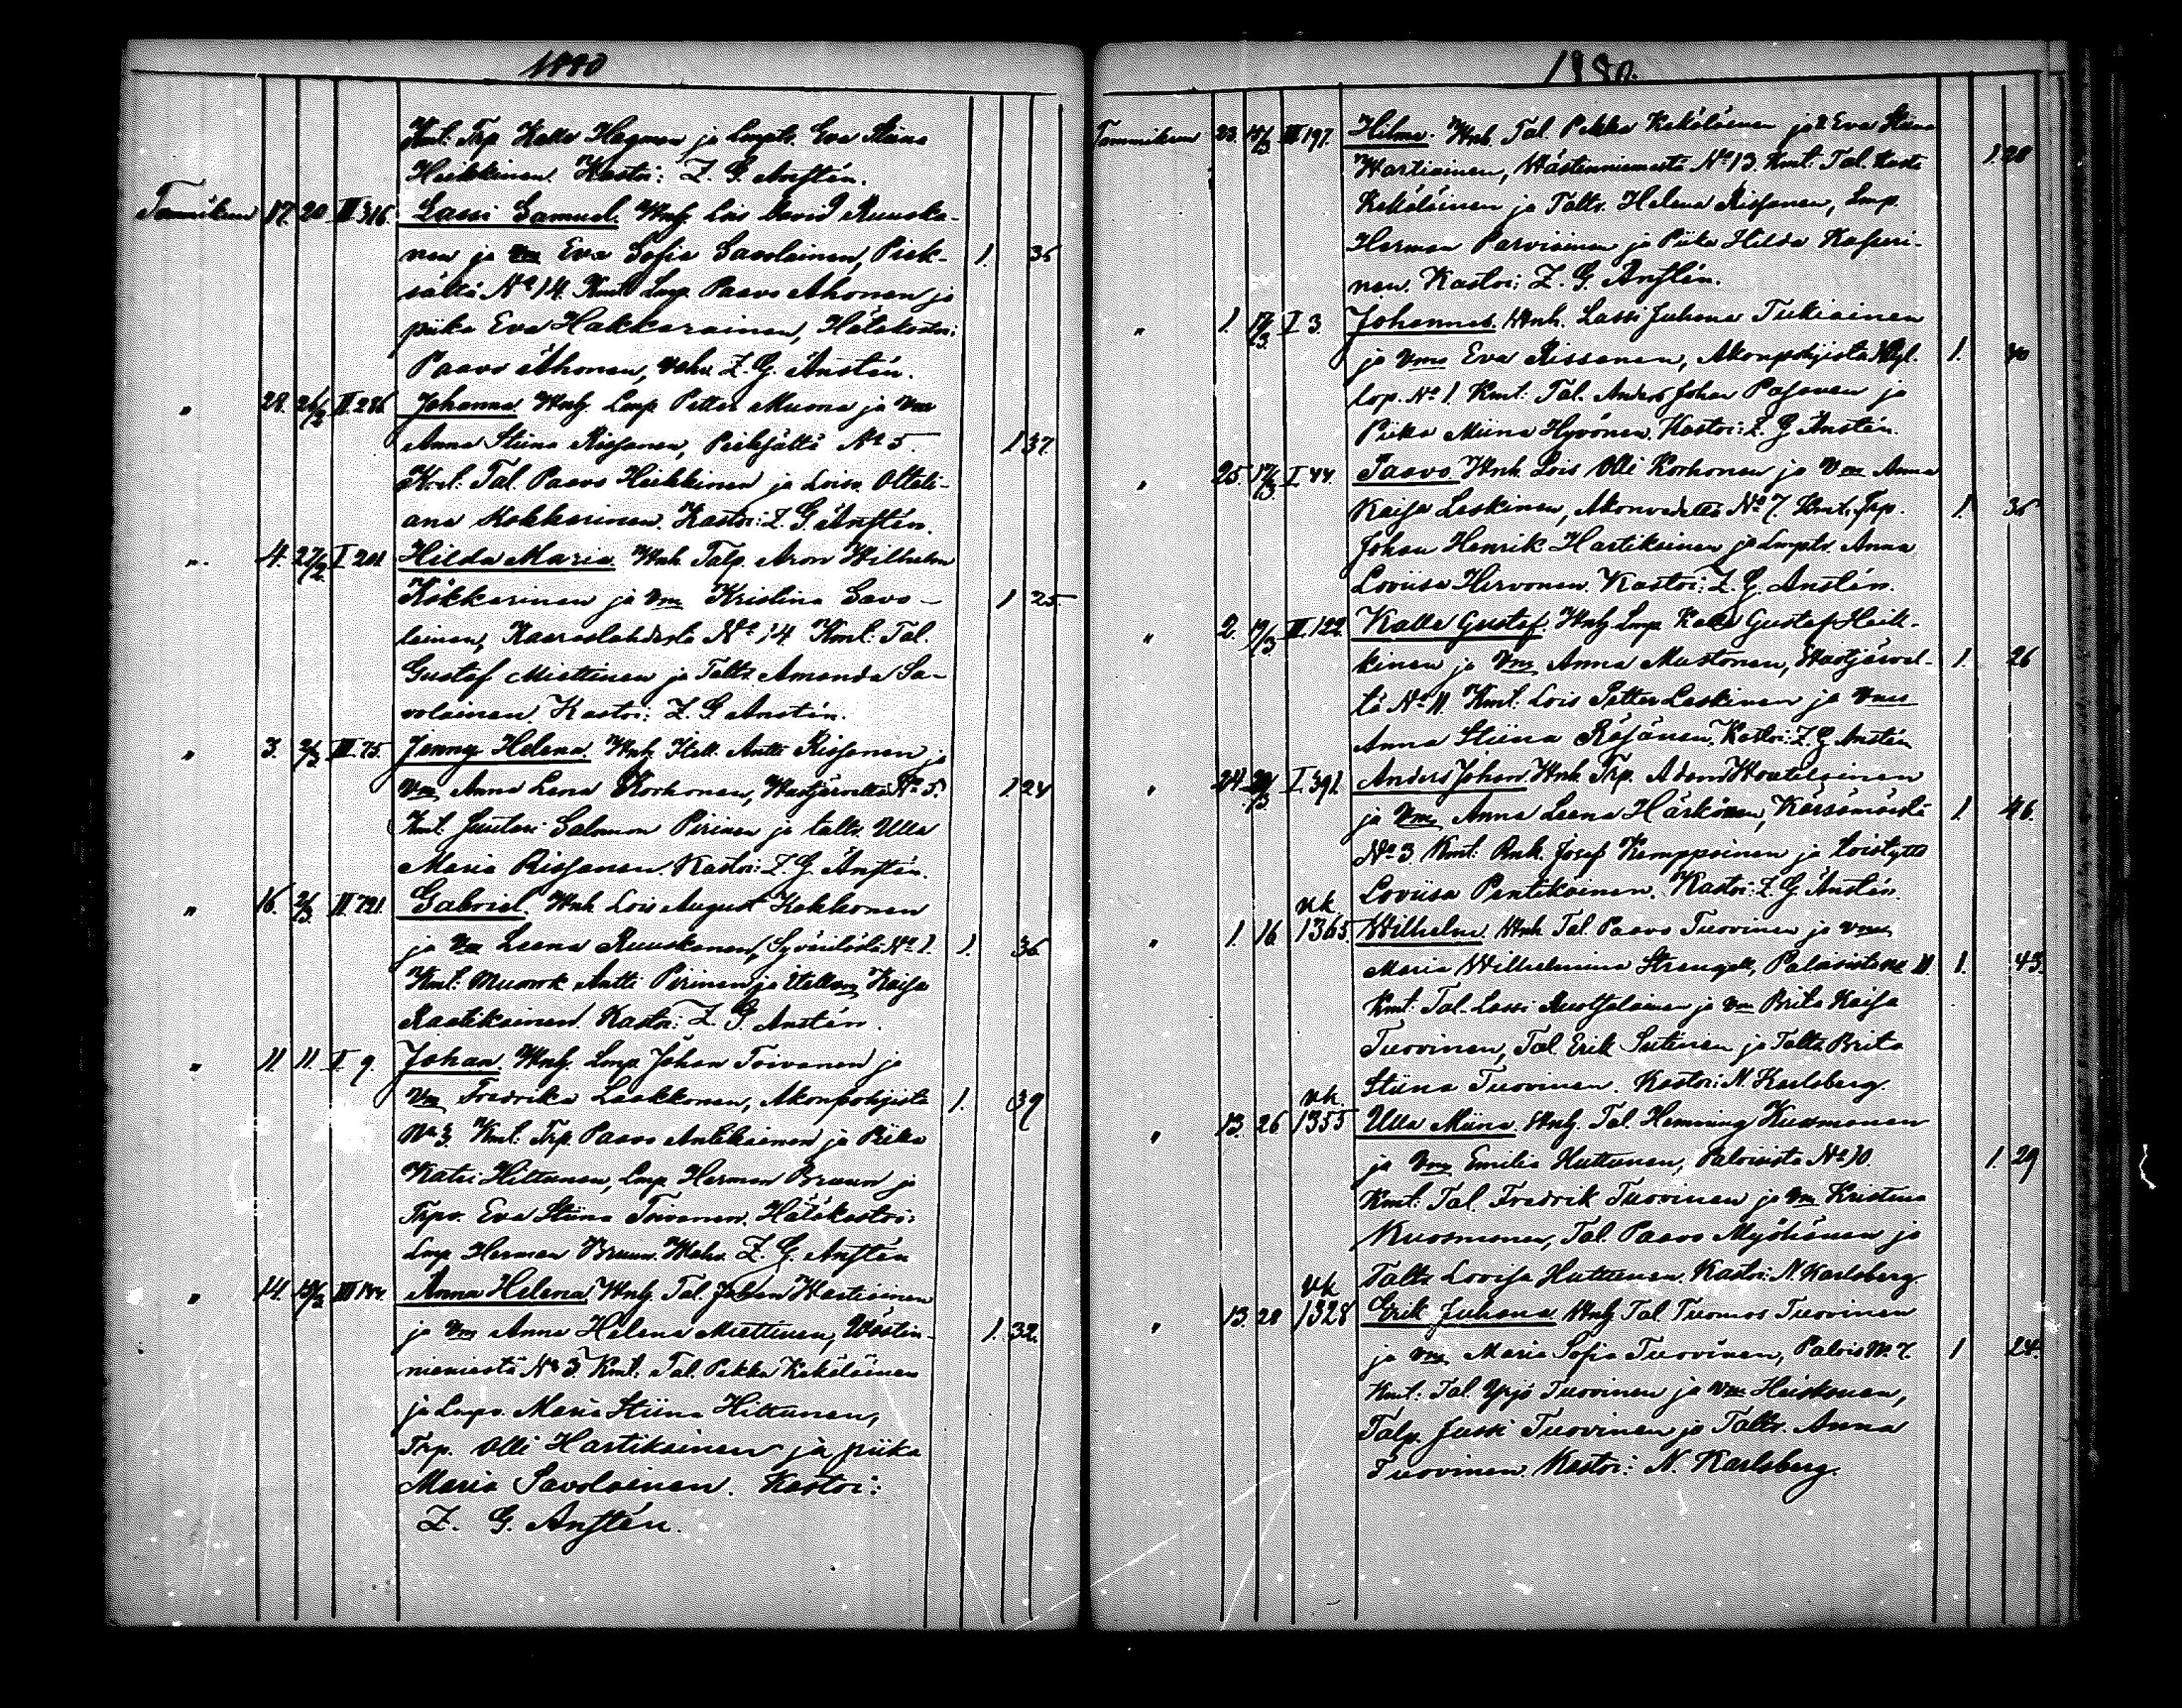 1880
Kmt. Trp. Kalle Hagman ja Lmpts. Eva Stiina
Heikkinen. Kastoi: Z. G. Ansten.
Tammikuun 17. 20. II 316. Lassi Samuel. Wnh. Lois David Ruuska-
nen ja Vm Eva Sofia Savolainen, Piek- 1. 36
sältä No 14. Kmt. Lmp. Paavo Ahonen ja
piika Eva Hakkarainen, Hätäkastoi:
Paavo Ahonen, vahv. Z. G. Ansten.
" 28. 26/2 II. 286 Johanna. Wnh. Lmp. Petter Muona ja Vm
Anna Stiina Rissanen, Pieksältä No 5. 1 37.
Kmt: Tal. Paavo Heikkinen ja Lois. Ottili-
ana Kokkarinen. Kastoi: Z. G. Ansten.
". 4. 27/2. I 201 Hilda Maria. Wnh. Talp. Aron Wilhelm
Kokkarinen ja Vm Kristina Savo- 1 25.
lainen, Kaareslahdesta No 14. Kmt: Tal.
Gustaf Miettinen ja Taltr. Amanda Sa-
volainen. Kastoi: Z. G. Ansten.
" 3. 2/3 III. 75. Jenny Helena. Wnh. Itell. Antti Rissanen ja
Vm Anna Lena Korhonen, Wastjärveltä No 5. 1 24
Kmt. Suutari Salomon Pirinen ja taltr. Ulla
Maria Rissanen. Kastoi: Z. G. Ansten.
" 16. 2/3 II. 721. Gabriel. Wnh. Lois August Kokkonen
ja Vm Leena Ruuskanen, Syvänlöstä No 1. 1. 36
Kmt: Muonk. Antti Pirinen ja Itellvm Kaisa
Raatikainen. Kastoi: Z. G. Ansten.
" 11. 11. I 9. Johan. Wnh. Lmp. Johan Toivanen ja
Vm Fredrika Laakkonen, Akonpohjista 1. 39
No 3. Kmt: Trp. Paavo Antikainen ja Piika
Katri Hiltunen, Lmp. Herman Bruun ja
Trpv. Eva Stiina Toivanen. Hätäkastoi:
Lmp. Herman Bruun. Wahv. Z. G. Ansten
" 14. III 144. Anna Helena. Wnh. Tal. Johan Wartiainen
ja Vm Anna Helena Miettinen, Wästin- 1. 32.
niemestä No 3. Kmt: Tal. Pekka Kekäläinen
ja Lmpv. Maria Stiina Hiltunen,
Trp. Olli Hartikainen ja piika
Maria Savolainen. Kastoi:
Z. G. Ansten.
1880.
Tammikuun 23. III 197. Hilma. Wnh. Tal. Pekka Kekäläinen ja Eva Stiina
Wartiainen, Wästinniemestä No 13. Kmt. Tal. 1. 28
Kekäläinen ja Taltr. Helena Rissanen, Lmp.
Herman Parviainen ja Piika Hilda Kasuri-
nen. Kastoi: Z. G. Ansten.
" 1. 17/3. I 3. Johannes. Wnh. Lassi Juhana Tukiainen
ja Vm Eva Rissanen, Akonpohjista 1. 40
No 1. Kmt: Tal. Anders Johan Pasanen ja
Piika Miina Hyvönen. Kastoi: Z. G. Ansten.
" 25. 17/3. I 44. Paavo. Wnh. Lois Olli Korhonen ja Vm Anna
Kaisa Leskinen, Akonvedeltä No 7. Kmt. Trp. 1. 36
Johan Henrik Hartikainen ja Lmptr. Anna
Loviisa Hirvonen. Kastoi: Z. G. Ansten.
" 2. 19/3 III. 122. Kalle Gustaf. Wnh. Lmp. Kalle Gustaf Heik-
kinen ja Vm Anna Mustonen, Wastjärvel- 1. 26
tä No 11. Kmt. Lois Petter Laskinen ja Vm
Anna Stiina Räsänen. Kastoi: Z. G. Ansten
" 24. 20/3 I. 391. Anders Johan. Wnh. Trp. Adam Woutilainen
ja Vm Anna Leena Härkönen, Kärsämäestä 1. 46.
No 3. Kmt: Rnh. Josef Kemppainen ja loistyttö
Loviisa Pentikainen. Kastoi: Z. G. Ansten.
" 1. 16. vk 1365. Wilhelm. Wnh. Tal. Paavo Tuovinen ja vm
Maria Wilhelmina Strengell, Paloisista 1. 43.
Kmt: Tal. Lassi Ruotsalainen ja vm Brita Kaisa
Tuovinen, Tal. Erik Sutinen ja Taltr. Brita
Stiina Tuovinen. Kastoi: N. Karlsberg.
" 13. 26 vk. 1355 Ulla Miina. Wnh. Tal. Hemming Kuosmanen
ja Vm Emilia Huttunen, Paloisista No 10. 1. 29
Kmt: Tal. Fredrik Tuovinen ja vm Kristina
Kuosmanen, Tal. Paavo Myöhänen ja
Taltr. Lovisa Huttunen. Kastoi: N. Karlsberg.
" 13. 28 vk 1328 Erik Juhana. Wnh. Tal. Tuomas Tuovinen
ja vm Maria Sofia Tuovinen, Palois No 7. 1 24.
Kmt: Tal. Yrjö Tuovinen ja vm Heiskanen,
Talp. Jussi Tuovinen ja Taltr. Anna
Tuovinen. Kastoi: N. Karlsberg.